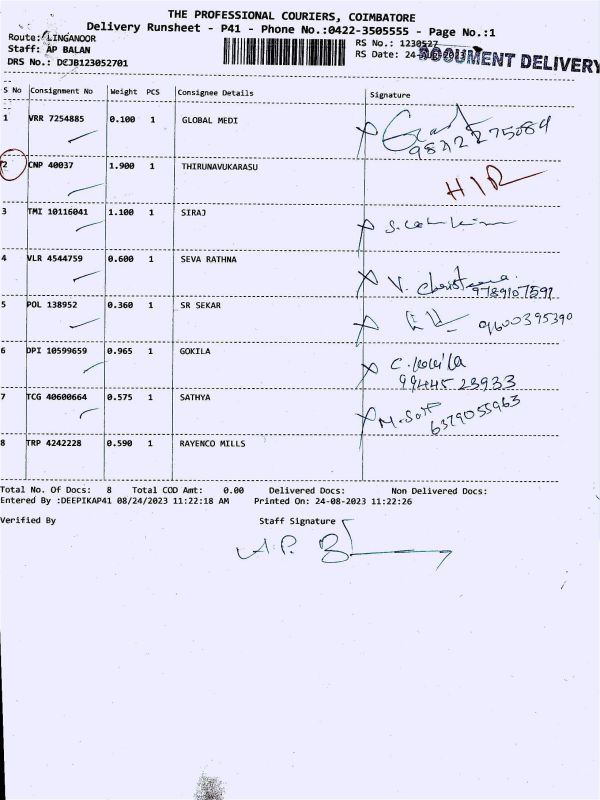 THE PROFESSIONAL COURIERS, COIMBATORE
Delivery Runsheet - P41 - Phone No.:0422-3505555 - Page No.:1
Route: LINGANOOR
RS No.: 1230527
Staff: AP BALAN
RS Date: 24-
DOCUMENT DELIVERY
DRS No.: DCJB123052701
S No Consignment No Weight PCS Consignee Details Signature
1 VRR 7254885 0.100 1 GLOBAL MEDI
2 CNP 40037 1.900 1 THIRUNAVUKARASU
3 TMI 10116041 1.100 1 SIRAJ
4 VLR 4544759 0.600 1 SEVA RATHNA V. 9789107591
5 POL 138952 0.360 1 SR SEKAR 9600395390
6 DPI 10599659 0.965 1 GOKILA C. 9944523933
7 TCG 40600664 0.575 1 SATHYA 6379055963
8 TRP 4242228 0.590 1 RAYENCO MILLS
Total No. Of Docs: 8 Total COD Amt: 0.00 Delivered Docs: Non Delivered Docs:
Entered By :DEEPIKAP41 08/24/2023 11:22:18 AM Printed On: 24-08-2023 11:22:26
Verified By Staff Signature
A.P.